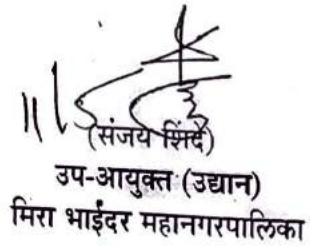 (संजय शिंदे)
उप-आयुक्त (उद्यान)
मिरा भाईंदर महानगरपालिका